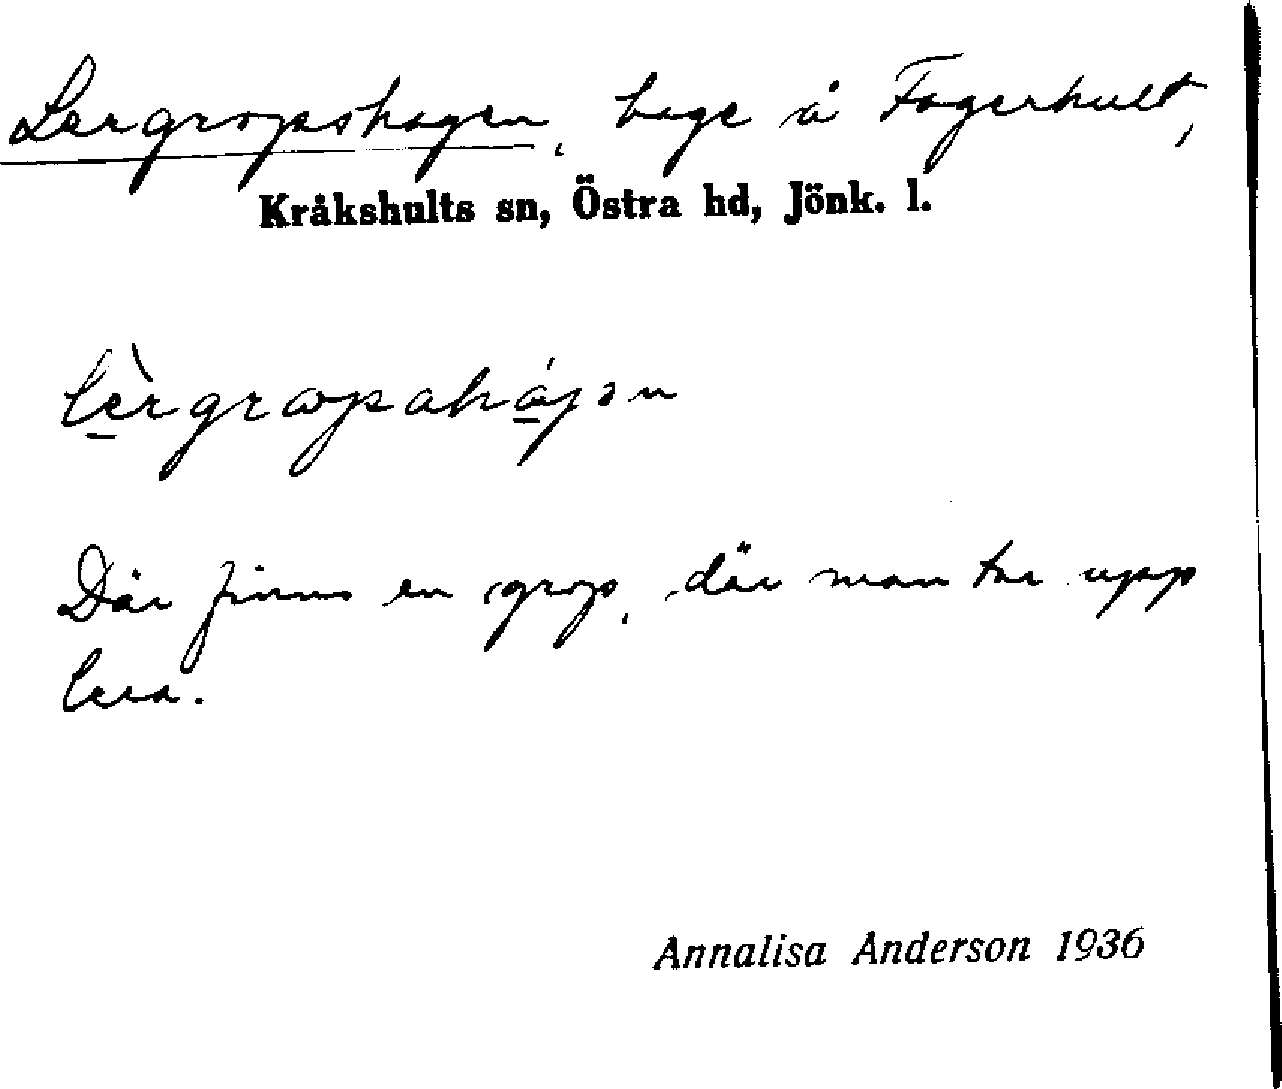 Lergropshagen, hage å Fagerhult,
Kråkshults sn, Östra hd, Jönk. l.
Där finns en grop, där man tar upp
lera.
Annalisa Anderson 1936